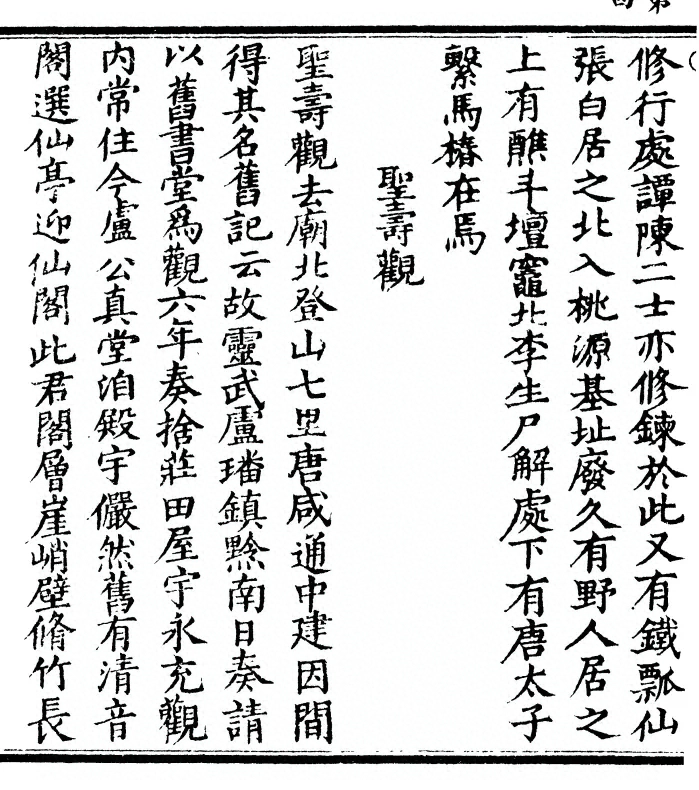 修行處譚陳二士亦修鍊於此又有鐵瓢仙
張白居之北入桃源基址廢久有野人居之
上有醮斗壇竈北李生尸解處下有唐太子
繫馬樁在焉
聖壽觀
聖壽觀去廟北登山七里唐咸通中建因間
得其名舊記云故靈武盧璠鎮黔南日奏請
以舊書堂爲觀六年奏捨莊田屋宇永充觀
內常住今盧公真堂洎殿宇儼然舊有清音
閣選仙亭迎仙閣此君閣層崖峭壁脩竹長